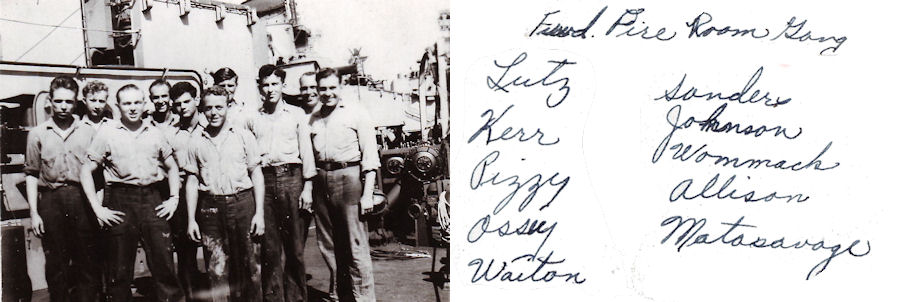 Fwd. Fire Room Gang
Lutz
Kerr
Pizzy
Ossey
Waiton
Sanders
Johnson
Wommack
Allison
Matasavage